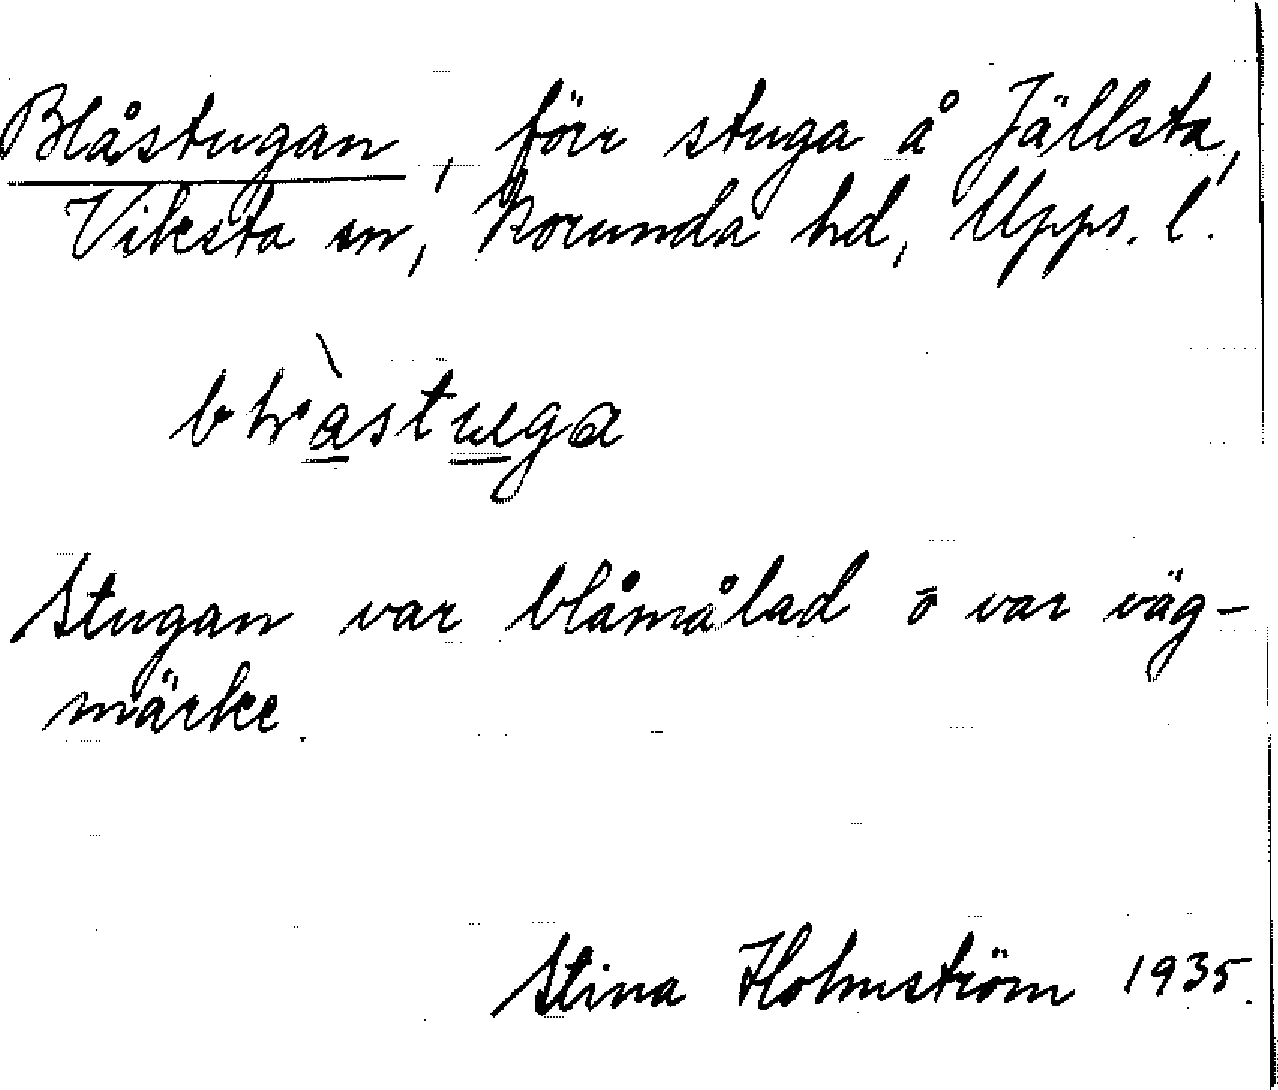 Blåstugan, förr stuga å Jällsta,
Viksta sn, Norunda hd, Upps. l.
Stugan var blåmålad o var väg-
märke.
Stina Holmström 1935.